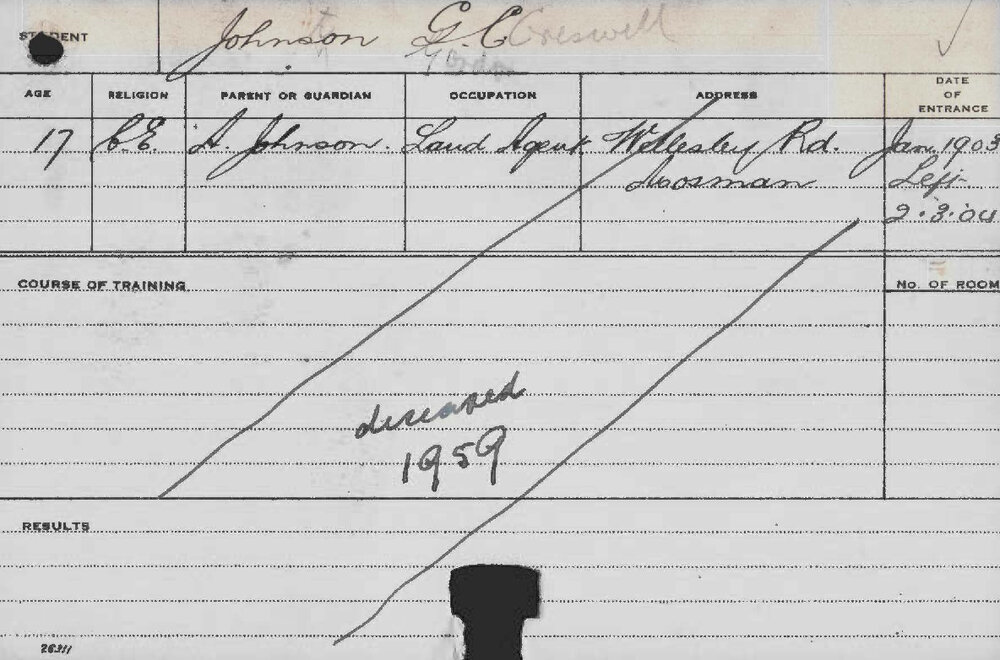 STUDENT Johnson G. C Creswell
AGE RELIGION PARENT OR GUARDIAN OCCUPATION ADDRESS DATE OF ENTRANCE
17 C.E. A. Johnson. Land Agent Wellesley Rd. Jan. 1903
Mosman Left
2.3.04
COURSE OF TRAINING No. OF ROOM
deceased
1959
RESULTS